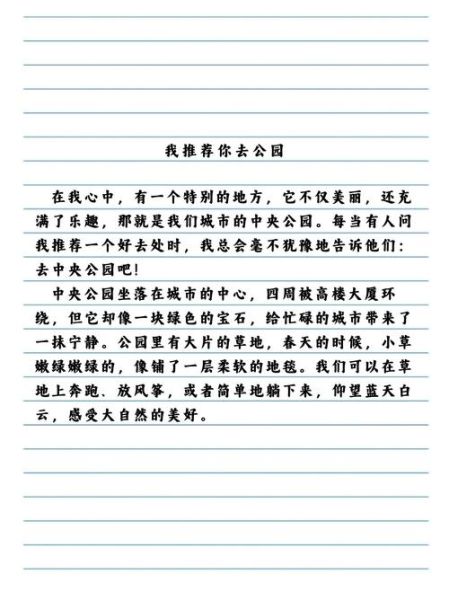 我推荐你去公园
在我心中，有一个特别的地方，它不仅美丽，还充
满了乐趣，那就是我们城市的中央公园。每当有人问
我推荐一个好去处时，我总会毫不犹豫地告诉他们：
去中央公园吧！
中央公园坐落在城市的中心，四周被高楼大厦环
绕，但它却像一块绿色的宝石，给忙碌的城市带来了
一抹宁静。公园里有大片的草地，春天的时候，小草
嫩绿嫩绿的，像铺了一层柔软的地毯。我们可以在草
地上奔跑、放风筝，或者简单地躺下来，仰望蓝天白
云，感受大自然的美好。